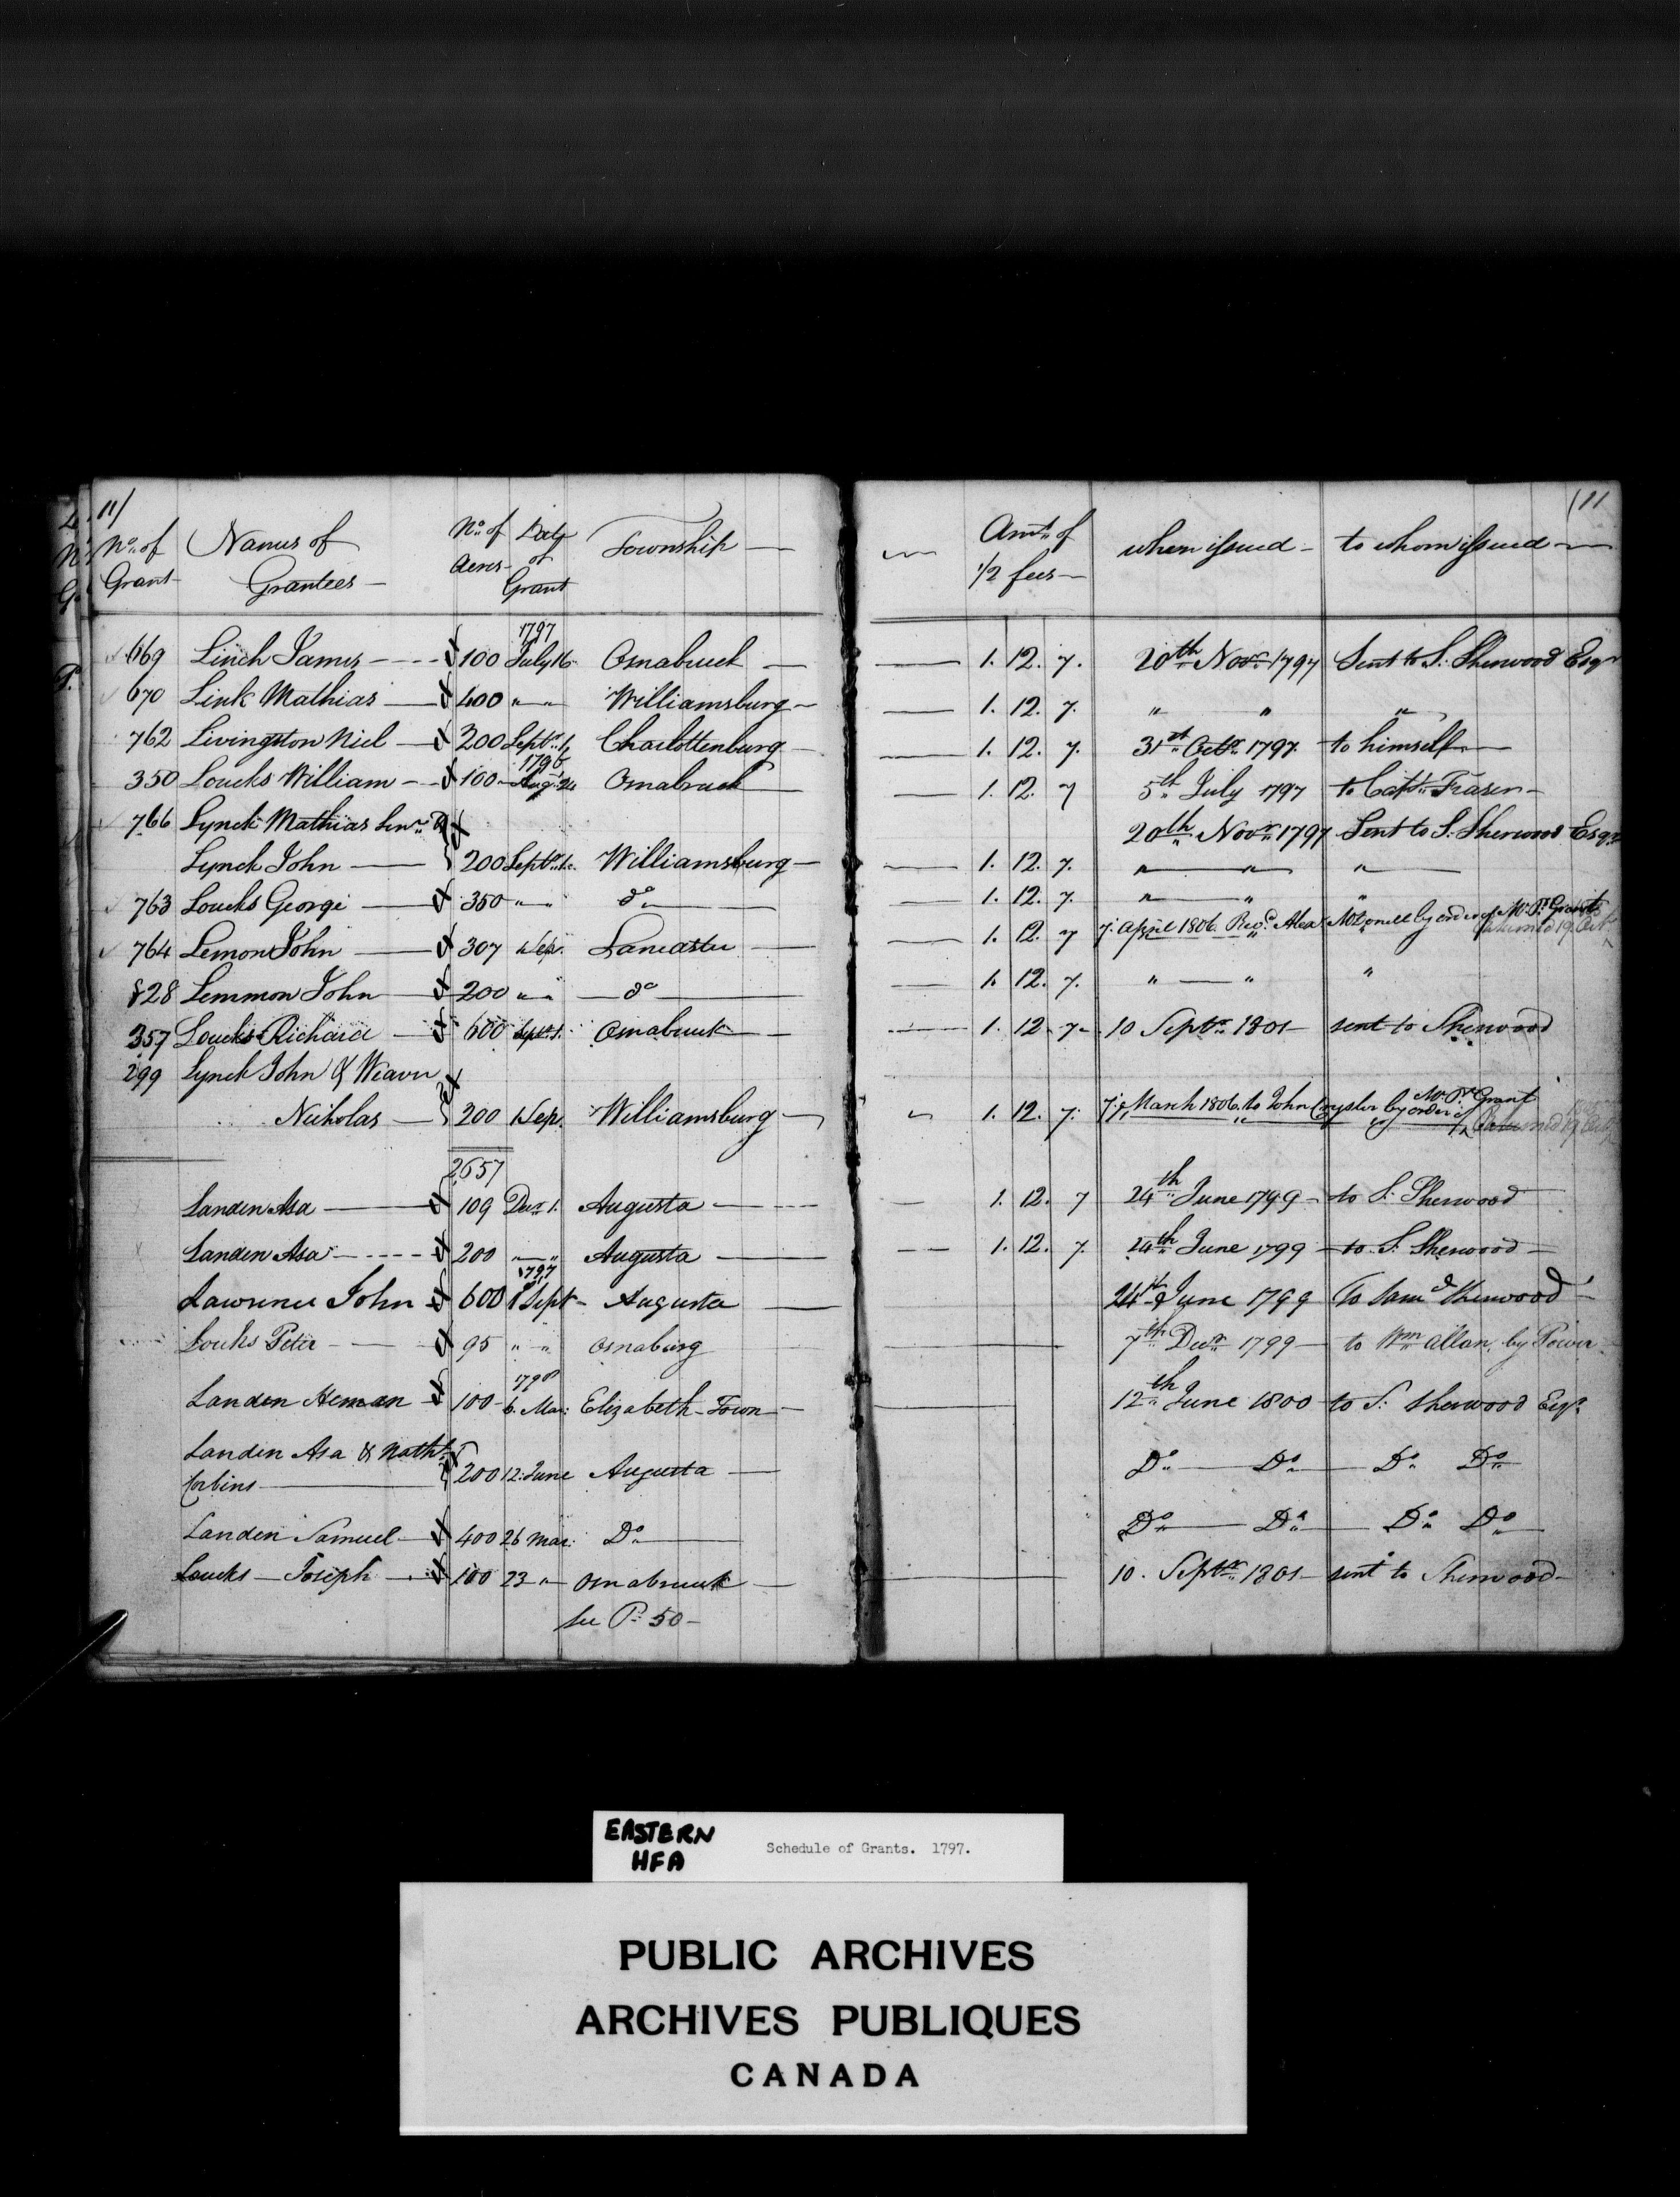 11/ (11
No. of Grant Names of Grantees No. of Acres Date of Grant Township Amt. of 1/2 fees when issued to whom issued
1797
669 Linch James 100 July 16 Osnabruck 1. 12. 7. 20th Novr 1797 Sent to S. Sherwood Esqr
670 Link Mathias 400 " " Williamsburg 1. 12. 7. " " "
762 Livingston Niel 200 Septr. 1, Charlottenburg 1. 12. 7. 31st Octr. 1797. to himself
1796
350 Loucks William 100 Aug. 24 Osnabruck 1. 12. 7 5th July 1797 to Catn. Fraser
766 Lynck Mathias Senr. & 20th Novr 1797 Sent to S. Sherwood Esqr
Lynck John 200 Septr. 1. Williamsburg 1. 12. 7. " " "
763 Loucks George 350 " " do 1. 12. 7. " " "
764 Lemon John 307 1 Sep. Lancaster 1. 12. 7 7. April 1806. Revd. Alexr. McDonell by order of Mr. Pr. Grant Returned 19 Oct.
828 Lemmon John 200 " " do 1. 12. 7. " " "
357 Loucks Richard 600 Sept. 1. Osnabruck 1. 12. 7 10 Septr. 1801 sent to Sherwood
299 Lynck John & Weaver
Nicholas 200 1 Sep. Williamsburg 1. 12. 7. 7. March 1806. to John Crysler by order of Mr. Pr. Grant Returned 19 Oct.
2657
Landen Asa 109 Decr 1. Augusta 1. 12. 7 24th June 1799 to S. Sherwood
Landen Asa 200 " " Augusta 1. 12. 7. 24th June 1799 to S. Sherwood
1797
Lawrence John 600 1 Sept Augusta 24th June 1799 To Samd Sherwood
Louks Peter 95 " " Osnaburg 7th Decr 1799 to Wm Allan, by Power
1798
Landen Heman 100 6. Mar: Elizabeth Town 12th June 1800 to S. Sherwood Esqr
Landen Asa & Nathl.
Corbins 200 12. June Augusta Do Do Do Do
Landen Samuel 400 26 Mar: Do Do Do Do Do
Loucks Joseph 100 23 " Osnabruck 10. Septr. 1801 sent to Sherwood
see P. 50
EASTERN
HFA
Schedule of Grants. 1797.
PUBLIC ARCHIVES
ARCHIVES PUBLIQUES
CANADA